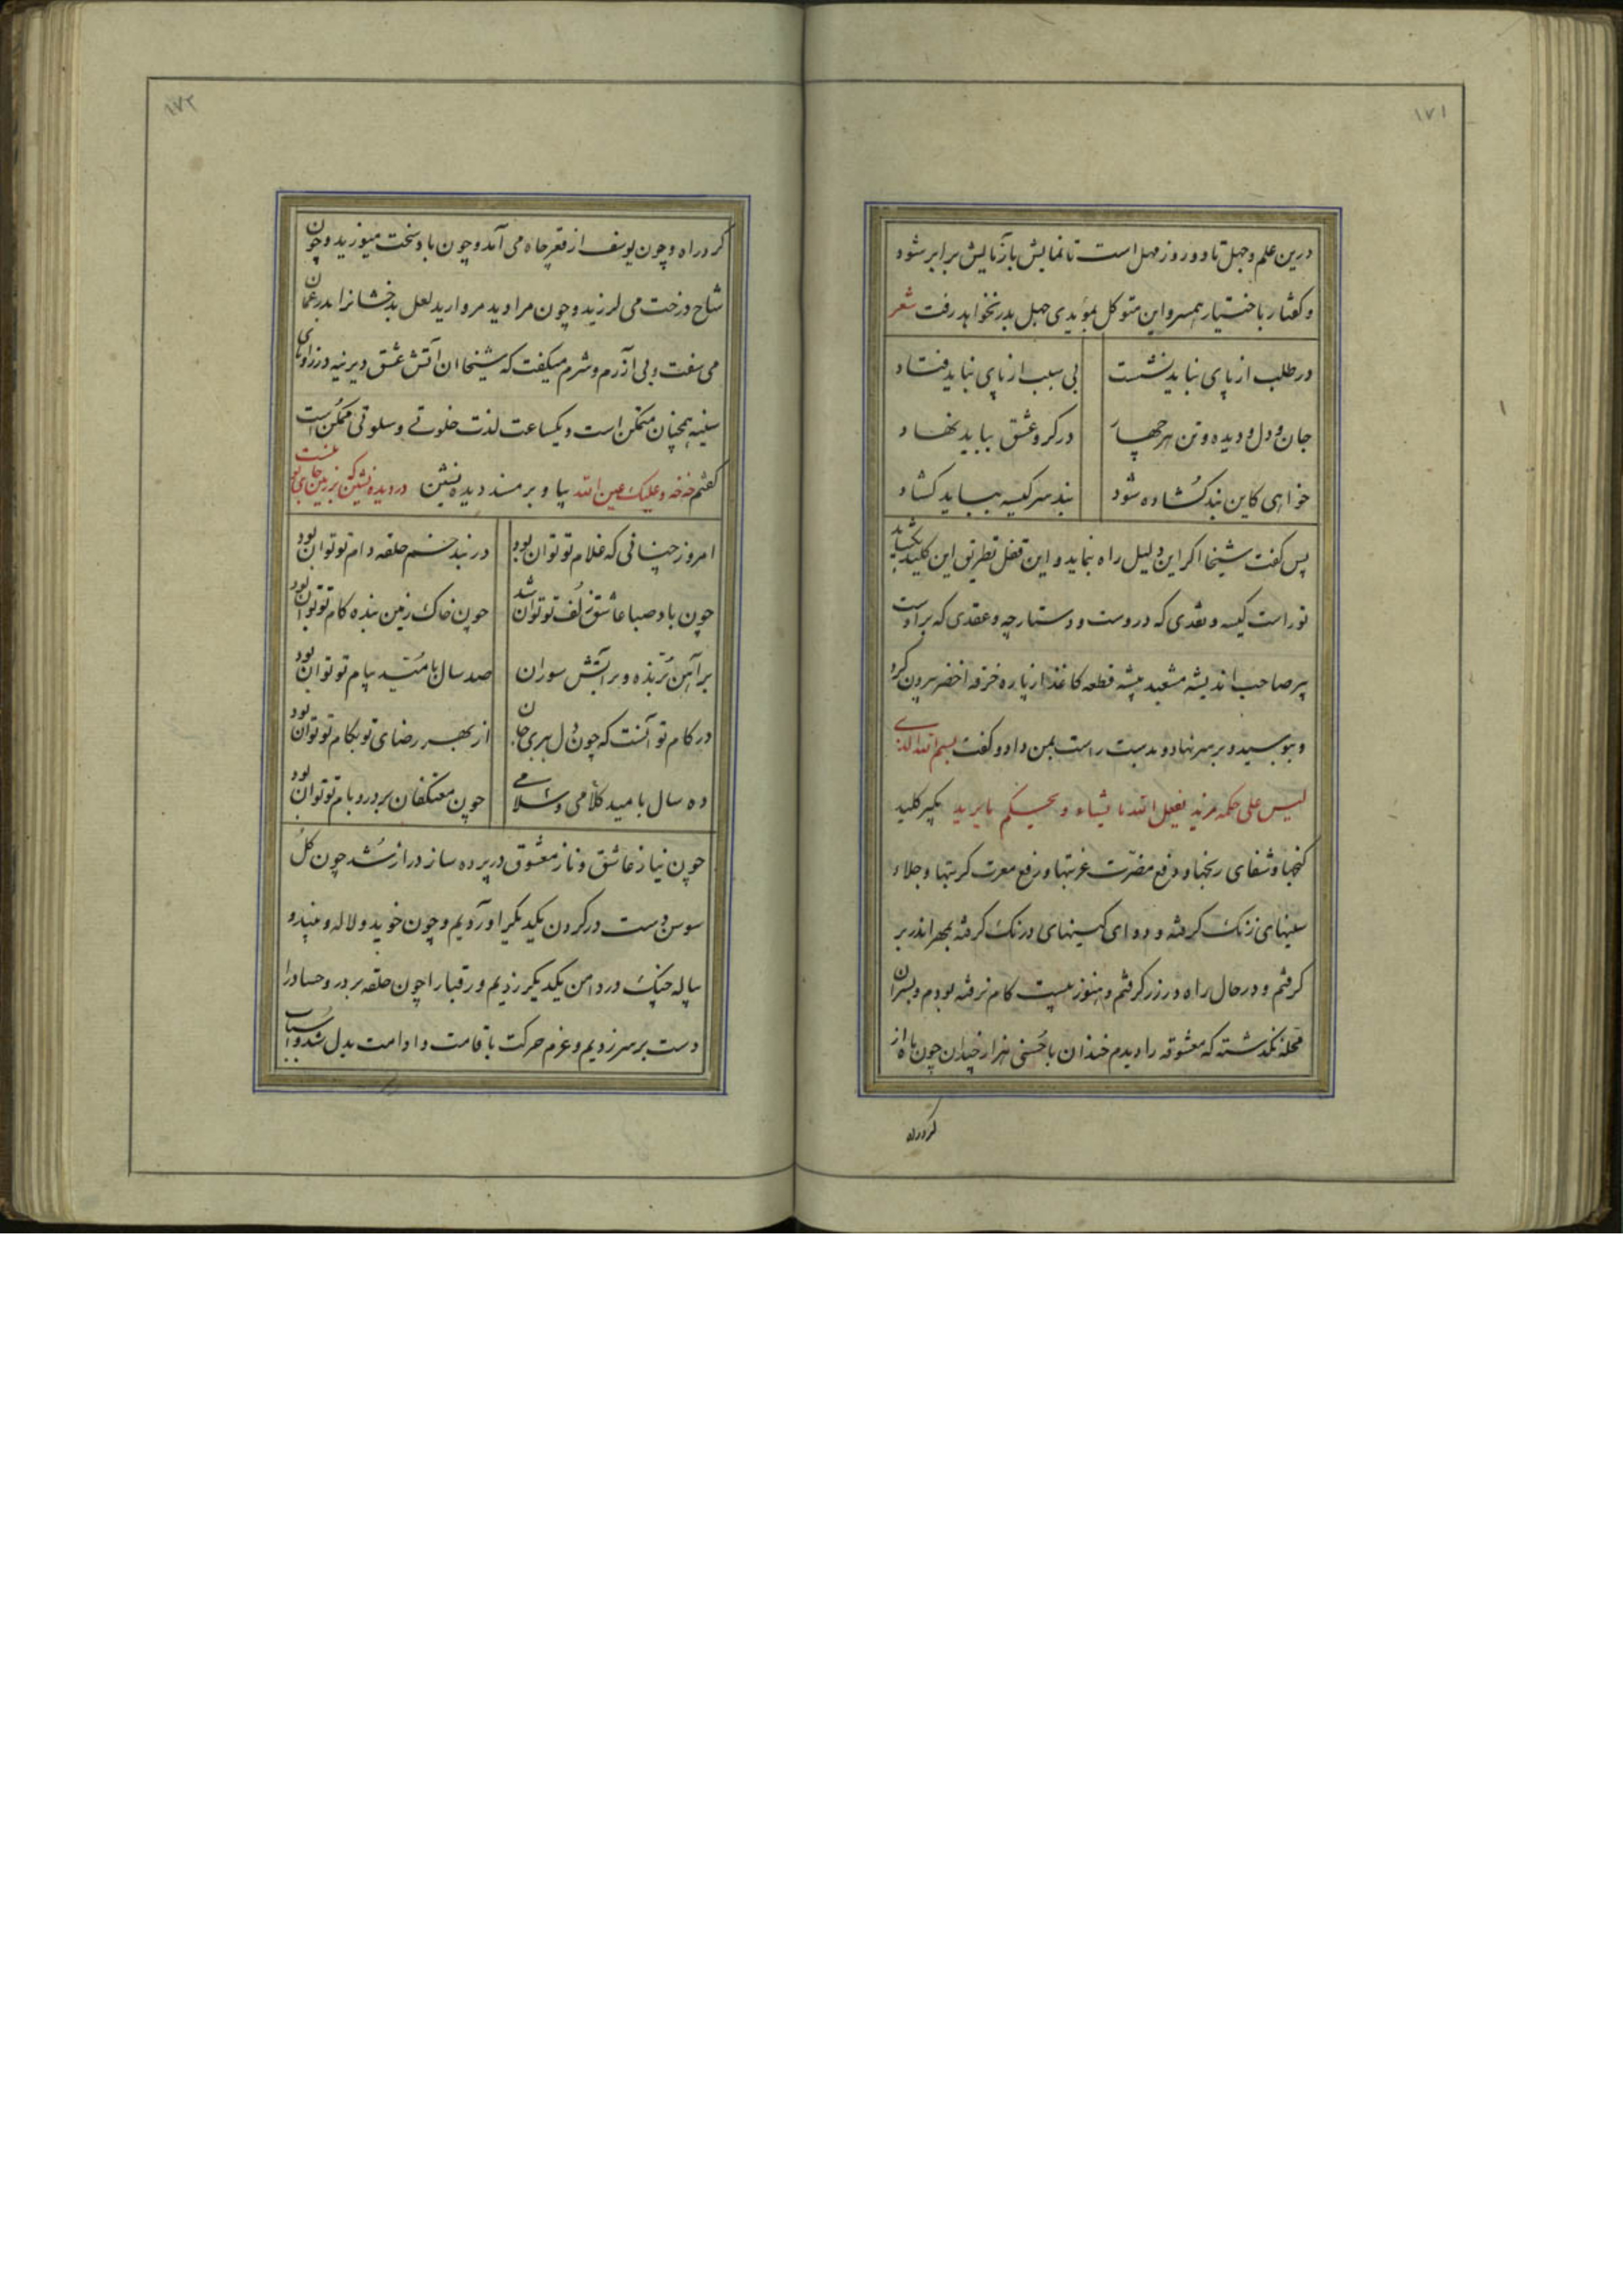 ۱۷۱
درین علم و جهل تا دو روز مهل است تا نمایش بازمایش برابر شود
و گفتار باختیار همسر و این متوکل بمؤیدی جهل بدر نخواهد رفت شعر
در طلب از پای نباید نشست بی سبب از پای نباید فتاد
جان و دل و دیده و تن هر چهار در گرو عشق بباید نهاد
خواهی کاین بند گشاده شود بند سر کیسه بباید گشاد
پس گفت شیخا اگر این دلیل راه نماید و این قفل بطریق این کلید بگشاید
تو راست کیسه و نقدی که دروست و دستارچه و عقدی که براوست
پیر صاحب اندیشه مشعبد پیشه قطعه کاغذ از پاره خرقه اخضر بیرون کرد
و ببوسید و بر سر نهاد و بدست راست بمن داد و گفت بسم الله الذی
لیس علی حکمه مزید یفعل الله ما یشاء و یحکم ما یرید بگیر کلید
گنجها و شفای رنجها و دفع مضرت غربتها و رفع معرت کربتها و جلاء
سینهای زنگ گرفته و دوای کسینهای درنگ گرفته بمهر اندر بر
گرفتم و در حال راه در زر گرفتم و هنوز بیست گام نرفته بودم و بسر آن
محله نگذشته که معشوقه را دیدم خندان با حسنی هزار چندان چون ماه از
گرد راه
۱۷۲
گرد راه و چون یوسف از قعر چاه می آمد و چون باد سخت میوزید و چون
شاخ درخت می لرزید و چون مراوید مروارید لعل بدخشانرا بدر عمان
می سفت و بی آزرم و شرم میگفت که شیخا ان آتش عشق دیرینه در زوایای
سینه همچنان متمکن است و یکساعت لذت خلوتی و سلوتی ممکن است
گفتم خه خه و علیک عین الله بیا و بر مسند دیده نشین در دیده نشین که بر زمین جای تو نیست
امروز چنانی که غلام تو توان بود در بند خم حلقه دام تو توان بود
چون باد صبا عاشق زلف تو توان شد چون خاک زمین بنده گام تو توان بود
بر آهن و بر آتش سوزان صد سال بامید پیام تو توان بود
در کام تو آنست که چون دل ببری جان از بهر رضای تو بکام تو توان بود
ده سال بامید کلامی و سلامی چون معتکفان بر در و بام تو توان بود
چون نیاز عاشق و ناز معشوق در پرده ساز دراز شد چون گل
سوسن دست در گردن یکدیگر اوردیم و چون خوید و لاله و
پیاله چنگ در دامن یکدیگر زدیم و رقبا را چون حلقه بر در و حساد را
دست بر سر زدیم و عزم حرکت باقامت و ادامت بدل شد و اسباب